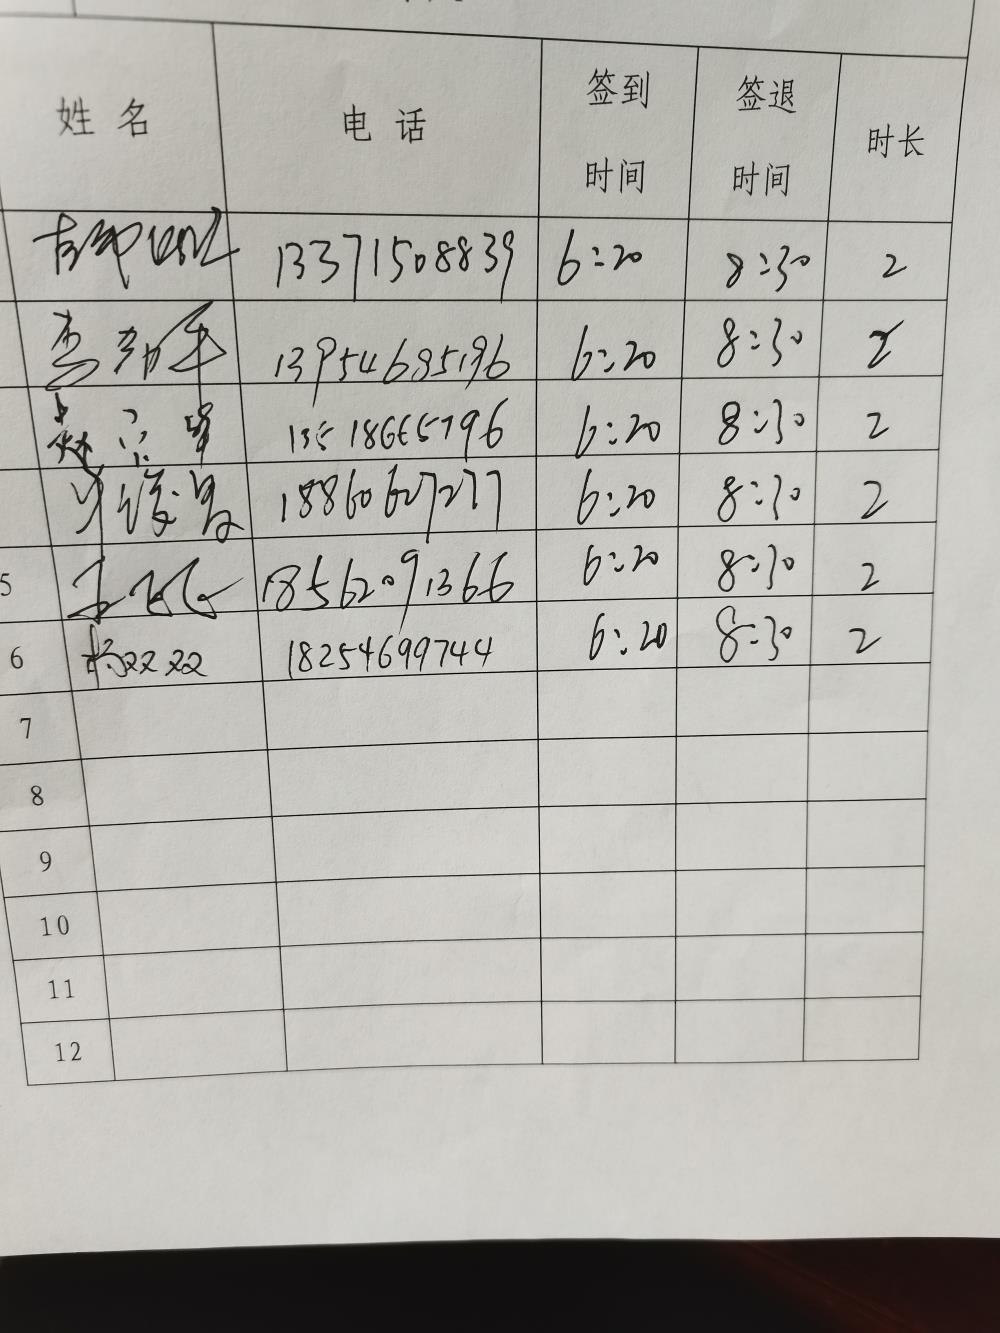 姓名 电话 签到时间 签退时间 时长
13371508839 6:20 8:30 2
13954685196 6:20 8:30 2
6:20 8:30 2
18860607277 6:20 8:30 2
5 18562091366 6:20 8:30 2
6 杨双双 18254699744 6:20 8:30 2
7
8
9
10
11
12